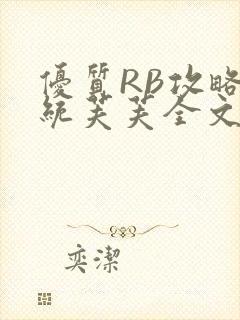 優質RB攻略
統芙芙全文
奕潔